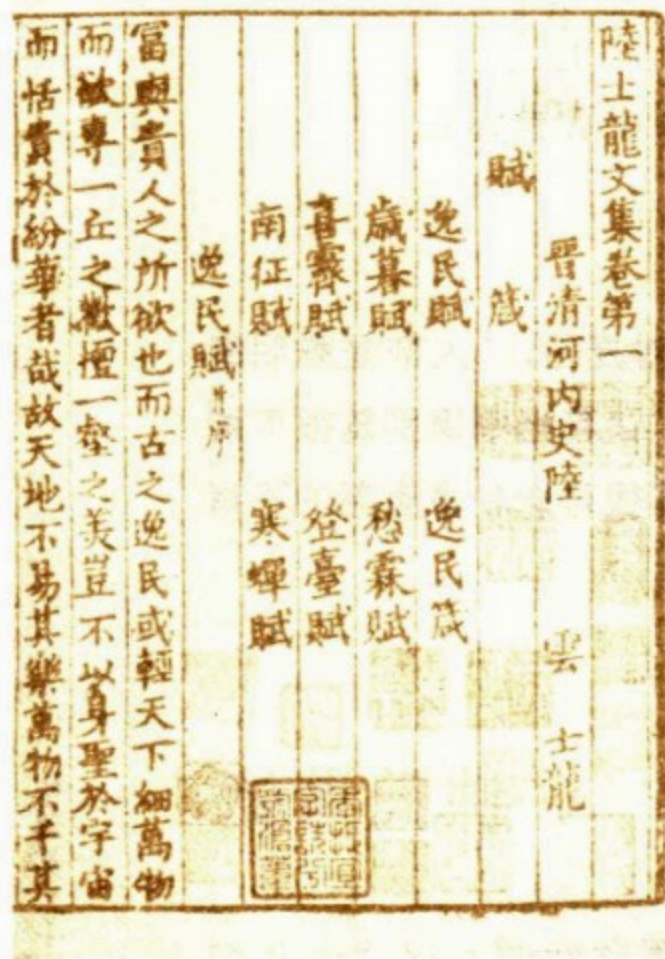 陸士龍文集卷第一
晉清河内史陸 雲 士龍
賦 箴
逸民賦 逸民箴
歳暮賦 愁霖賦
喜霽賦 登臺賦
南征賦 寒蟬賦
逸民賦并序
富與貴人之所欲也而古之逸民或輕天下細萬物
而欲專一丘之歡擅一壑之美豈不以身聖於宇宙
而恬貴於紛華者哉故天地不易其樂萬物不干其